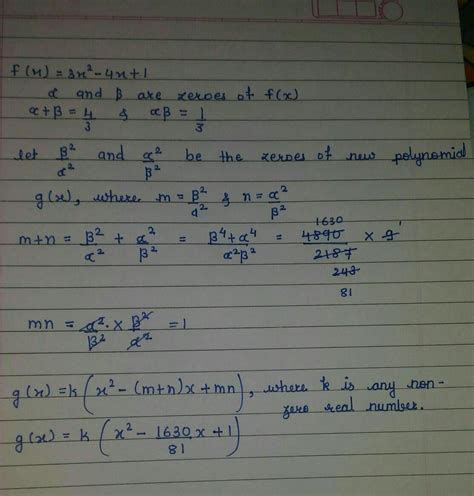 f(x) = 3x² - 4x + 1
α and β are zeroes of f(x)
α + β = 4/3 & αβ = 1/3
let β²/α² and α²/β² be the zeroes of new polynomial
g(x), where m = β²/α² & n = α²/β²
m + n = β²/α² + α²/β² = β⁴ + α⁴/α²β² = 4890/2187 × 9
1630
1
243
81
mn = α²/β² × β²/α² = 1
g(x) = k(x² - (m+n)x + mn), where k is any non-
zero real number.
g(x) = k(x² - 1630x/81 + 1)